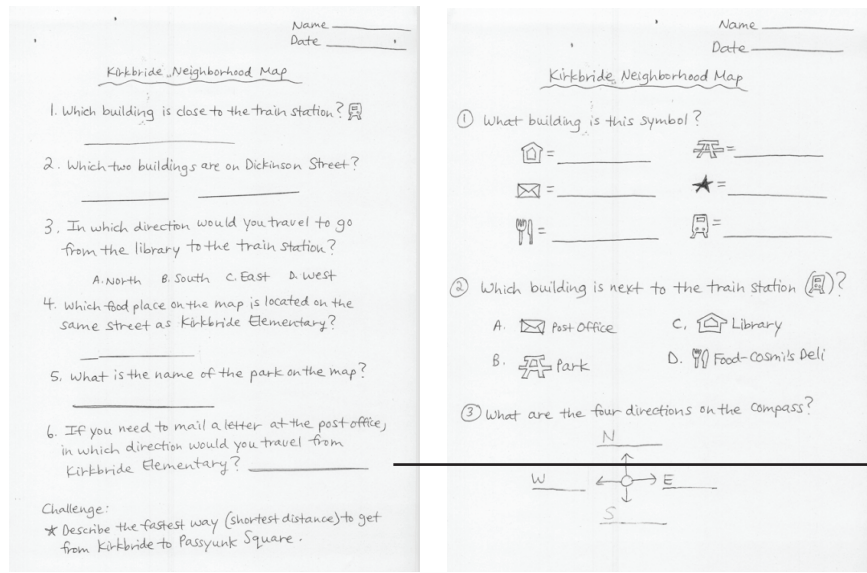 Name
Date
Kirkbride Neighborhood Map
1. Which building is close to the train station?
2. Which two buildings are on Dickinson Street?
3. In which direction would you travel to go
from the library to the train station?
A. North B. South C. East D. West
4. Which food place on the map is located on the
same street as Kirkbride Elementary?
5. What is the name of the park on the map?
6. If you need to mail a letter at the post office,
in which direction would you travel from
Kirkbride Elementary?
Challenge:
★ Describe the fastest way (shortest distance) to get
from Kirkbride to Passyunk Square.
Name
Date
Kirkbride Neighborhood Map
① What building is this symbol?
= =
= =
= =
② Which building is next to the train station ( )?
A. Post Office C. Library
B. Park D. Food-Cosmi's Deli
③ What are the four directions on the compass?
N
W E
S